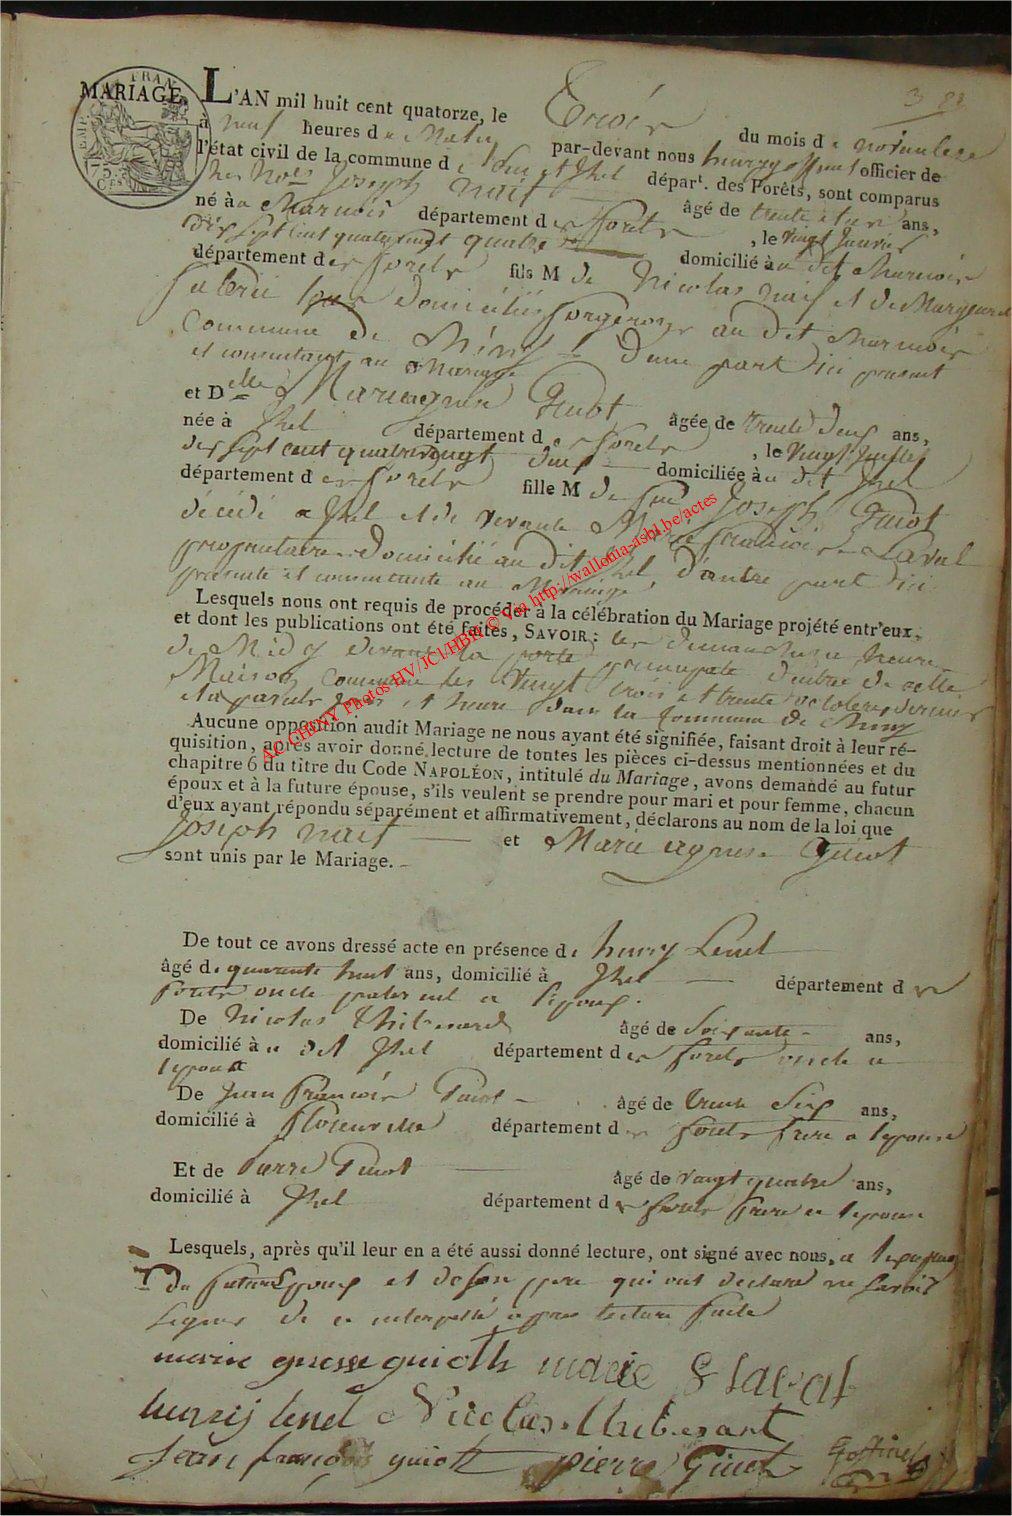 MARIAGE. L'AN mil huit cent quatorze, le Trois du mois de novembre
à neuf heures de Matin par-devant nous officier de
l'état civil de la commune de et Jzel départ. des Forêts, sont comparus
Joseph naif âgé de trente et un ans,
né à au Charmois département des forêts , le vingt Janvier
dix sept cent quatrevingt quatre
département des forêts fils M de Nicolas naif et de Margueritte
domicilié à au dit Charmois
domiciliés forgerons au dit Charmois
Commune de D'une part ici present
et consentant au Mariage
et Delle Marieagnese Guiot âgée de trente deux ans,
née à Jzel département des forets , le vingt Juillet
dix sept cent quatrevingt deux domiciliée à au dit Jzel
département des forets fille M de feu Joseph Guiot
décédé a Jzel et de vivante Marie francoise Laval
propriétaire Domicilié au dit Jzel, d'autre part ici
presente et consentante au Mariage
Lesquels nous ont requis de procéder à la célébration du Mariage projété entr'eux,
et dont les publications ont été faites, SAVOIR : les dimanches a heure
de Midy devant la porte principale d'entrée de cette
Maison Commune les vingt trois et trente octobre dernier
et a pareils jours et heure dans la Commune de Chiny
Aucune opposition audit Mariage ne nous ayant été signifiée, faisant droit à leur ré-
quisition, après avoir donné lecture de toutes les pièces ci-dessus mentionnées et du
chapitre 6 du titre du Code NAPOLÉON, intitulé du Mariage, avons demandé au futur
époux et à la future épouse, s'ils veulent se prendre pour mari et pour femme, chacun
d'eux ayant répondu séparément et affirmativement, déclarons au nom de la loi que
Joseph naif et Marie agnese Guiot
sont unis par le Mariage.
De tout ce avons dressé acte en présence de henry Lenel
âgé de quarante huit ans, domicilié à Jzel département des
forets oncle paternel a l'epoux.
De Nicolas Thibessart âgé de Soixante ans,
domicilié à au dit Jzel département des forets oncle a
lepouse
De Jean francois Guiot âgé de trente Six ans,
domicilié à florenville département des forets frere a lepouse
Et de Pierre Guiot âgé de vingt quatre ans,
domicilié à Jzel département des forets frere a lepouse
Lesquels, après qu'il leur en a été aussi donné lecture, ont signé avec nous, a lexception
du futur Epoux et de son pere qui ont déclaré ne savoir
signer de ce interpellé apres lecture faite
marie gnesse guioth marie f laval
henrij lenel Nicolas Thibessart
Jean françois guioth pierre Guiot Goffinet
AC CHINY Photos HV/JCI/HBH © Via http://wallonia-asbl.be/actes